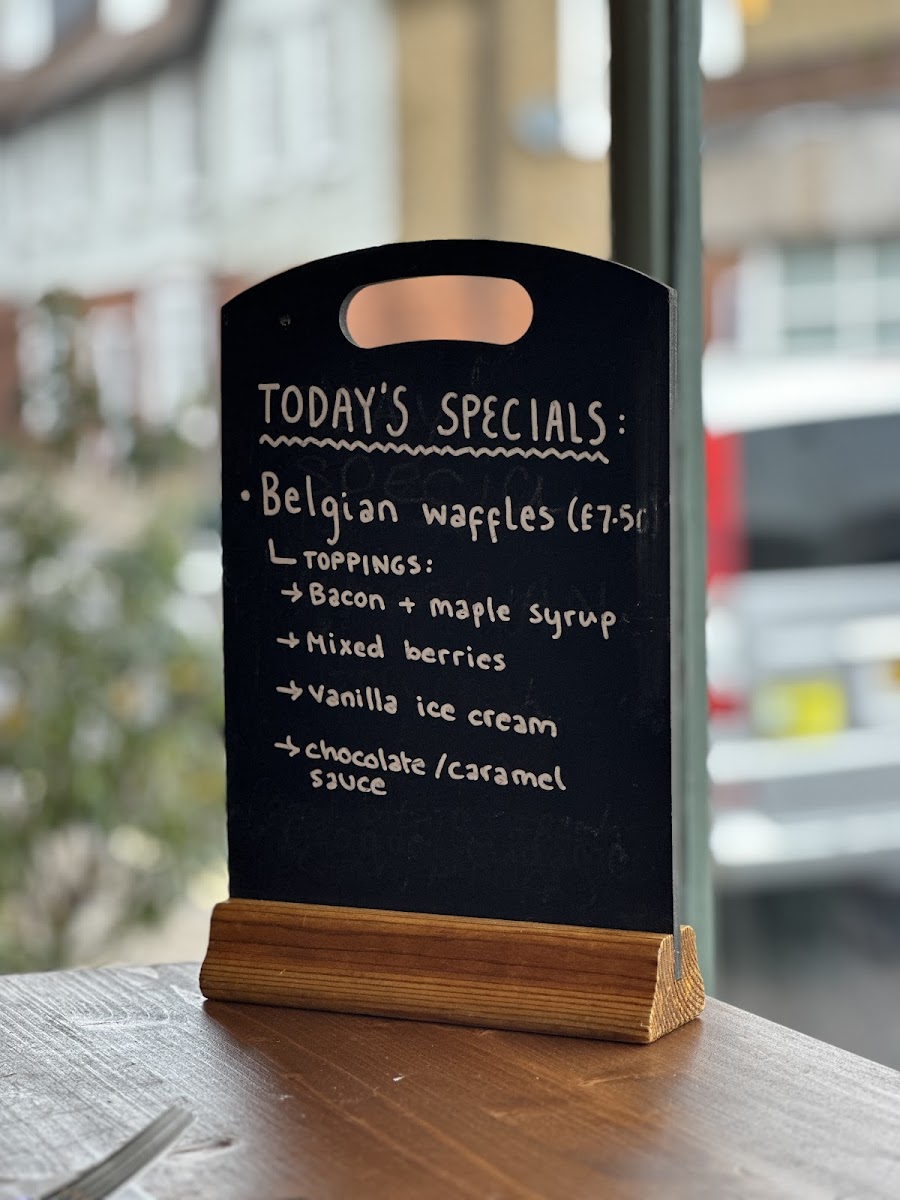 TODAY'S SPECIALS:
• Belgian waffles (£7.5
TOPPINGS:
→ Bacon + maple syrup
→ Mixed berries
→ Vanilla ice cream
→ chocolate/caramel
sauce